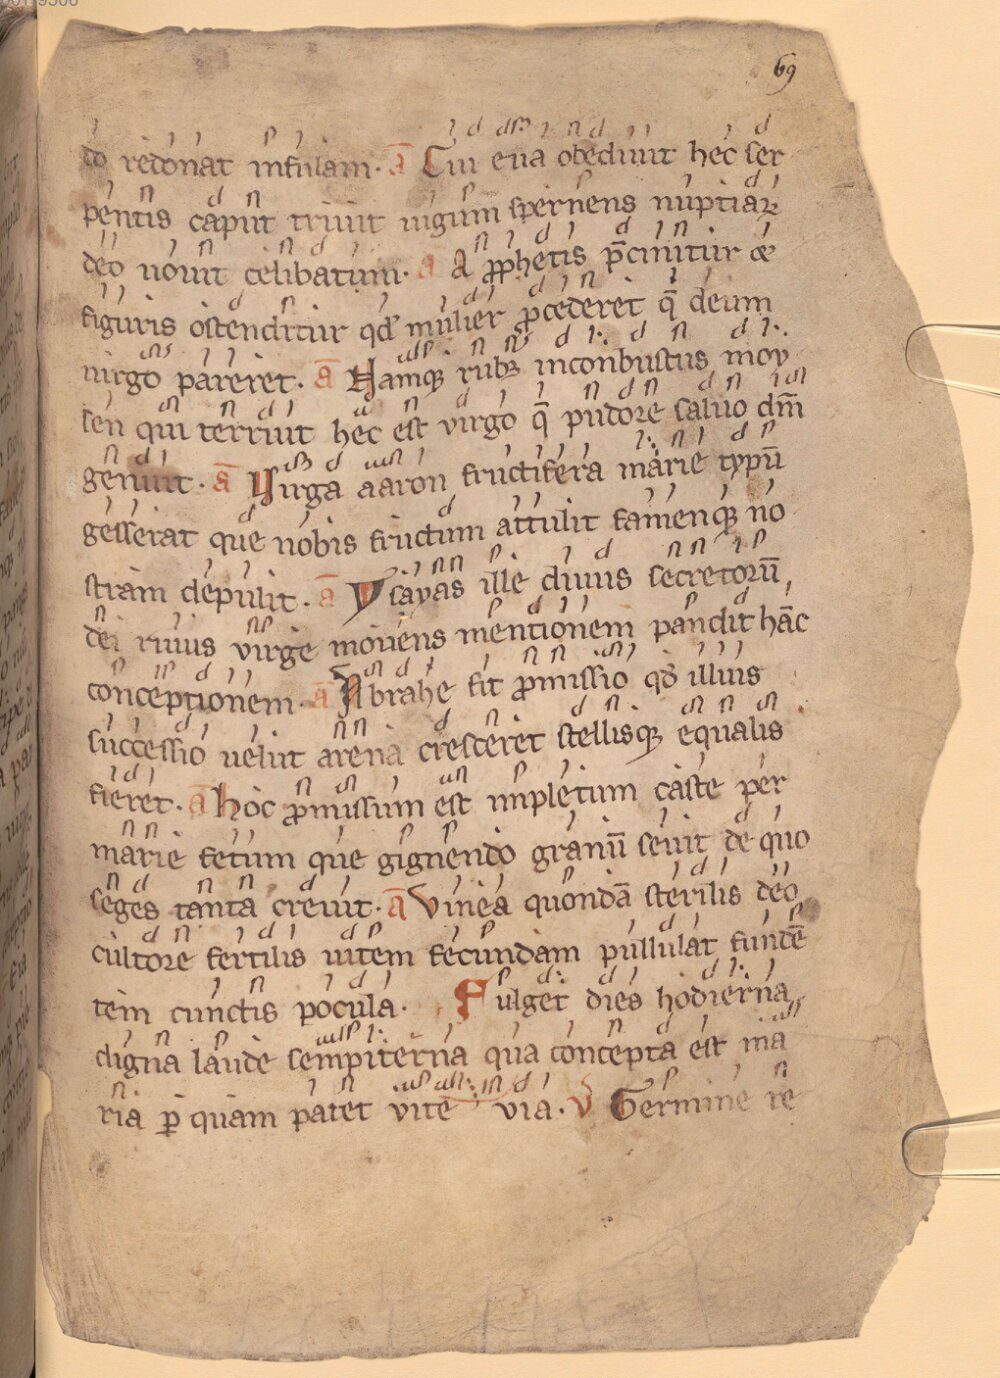 69
do redonat infulam. a̅ Cui eua obediuit hec ser
pentis caput triuit iugum spernens nuptiaꝝ
deo uouit celibatum. a̅ A ꝓphetis p̅cinitur &
figuris ostenditur qd̕ mulier ꝓcederet q̅ deum
uirgo pareret. a̅ Hamqꝫ rubꝰ inconbustus moy
sen qui terruit hec est virgo q̅ pudore saluo dm̅
genuit. a̅ Virga aaron fructifera marie typu̅
gesserat que nobis fructum attulit famenqꝫ no
stram depulit. a̅ Ysayas ille diuus secretoru̅
dei riuus virge mouens mentionem pandit ha̅c
conceptionem. a̅ Abrahe fit ꝓmissio qd̕ illius
successio uelut arena cresceret stellisqꝫ equalis
fieret. a̅ hoc ꝓmissum est impletum caste per
marie fetum que gignendo granu̅ seuit de quo
seges tanta creuit. a̅ Vinea quonda̅ sterilis deo
cultore fertilis uitem fecundam pullulat funde̅
tem cunctis pocula. Fulget dies hodierna
digna laude sempiterna qua concepta est ma
ria ꝑ quam patet vite via. v Germine re